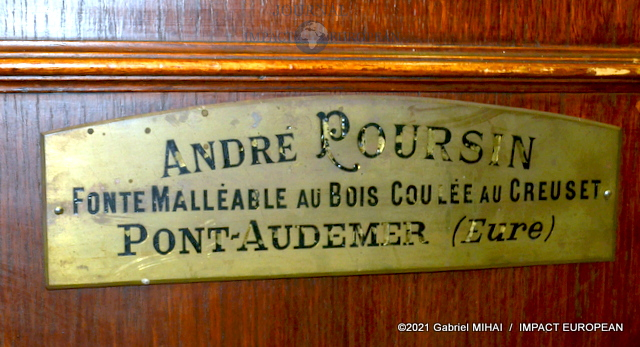 ANDRÉ POURSIN
FONTE MALLÉABLE AU BOIS COULÉE AU CREUSET
PONT-AUDEMER (Eure)
©2021 Gabriel MIHAI / IMPACT EUROPEAN